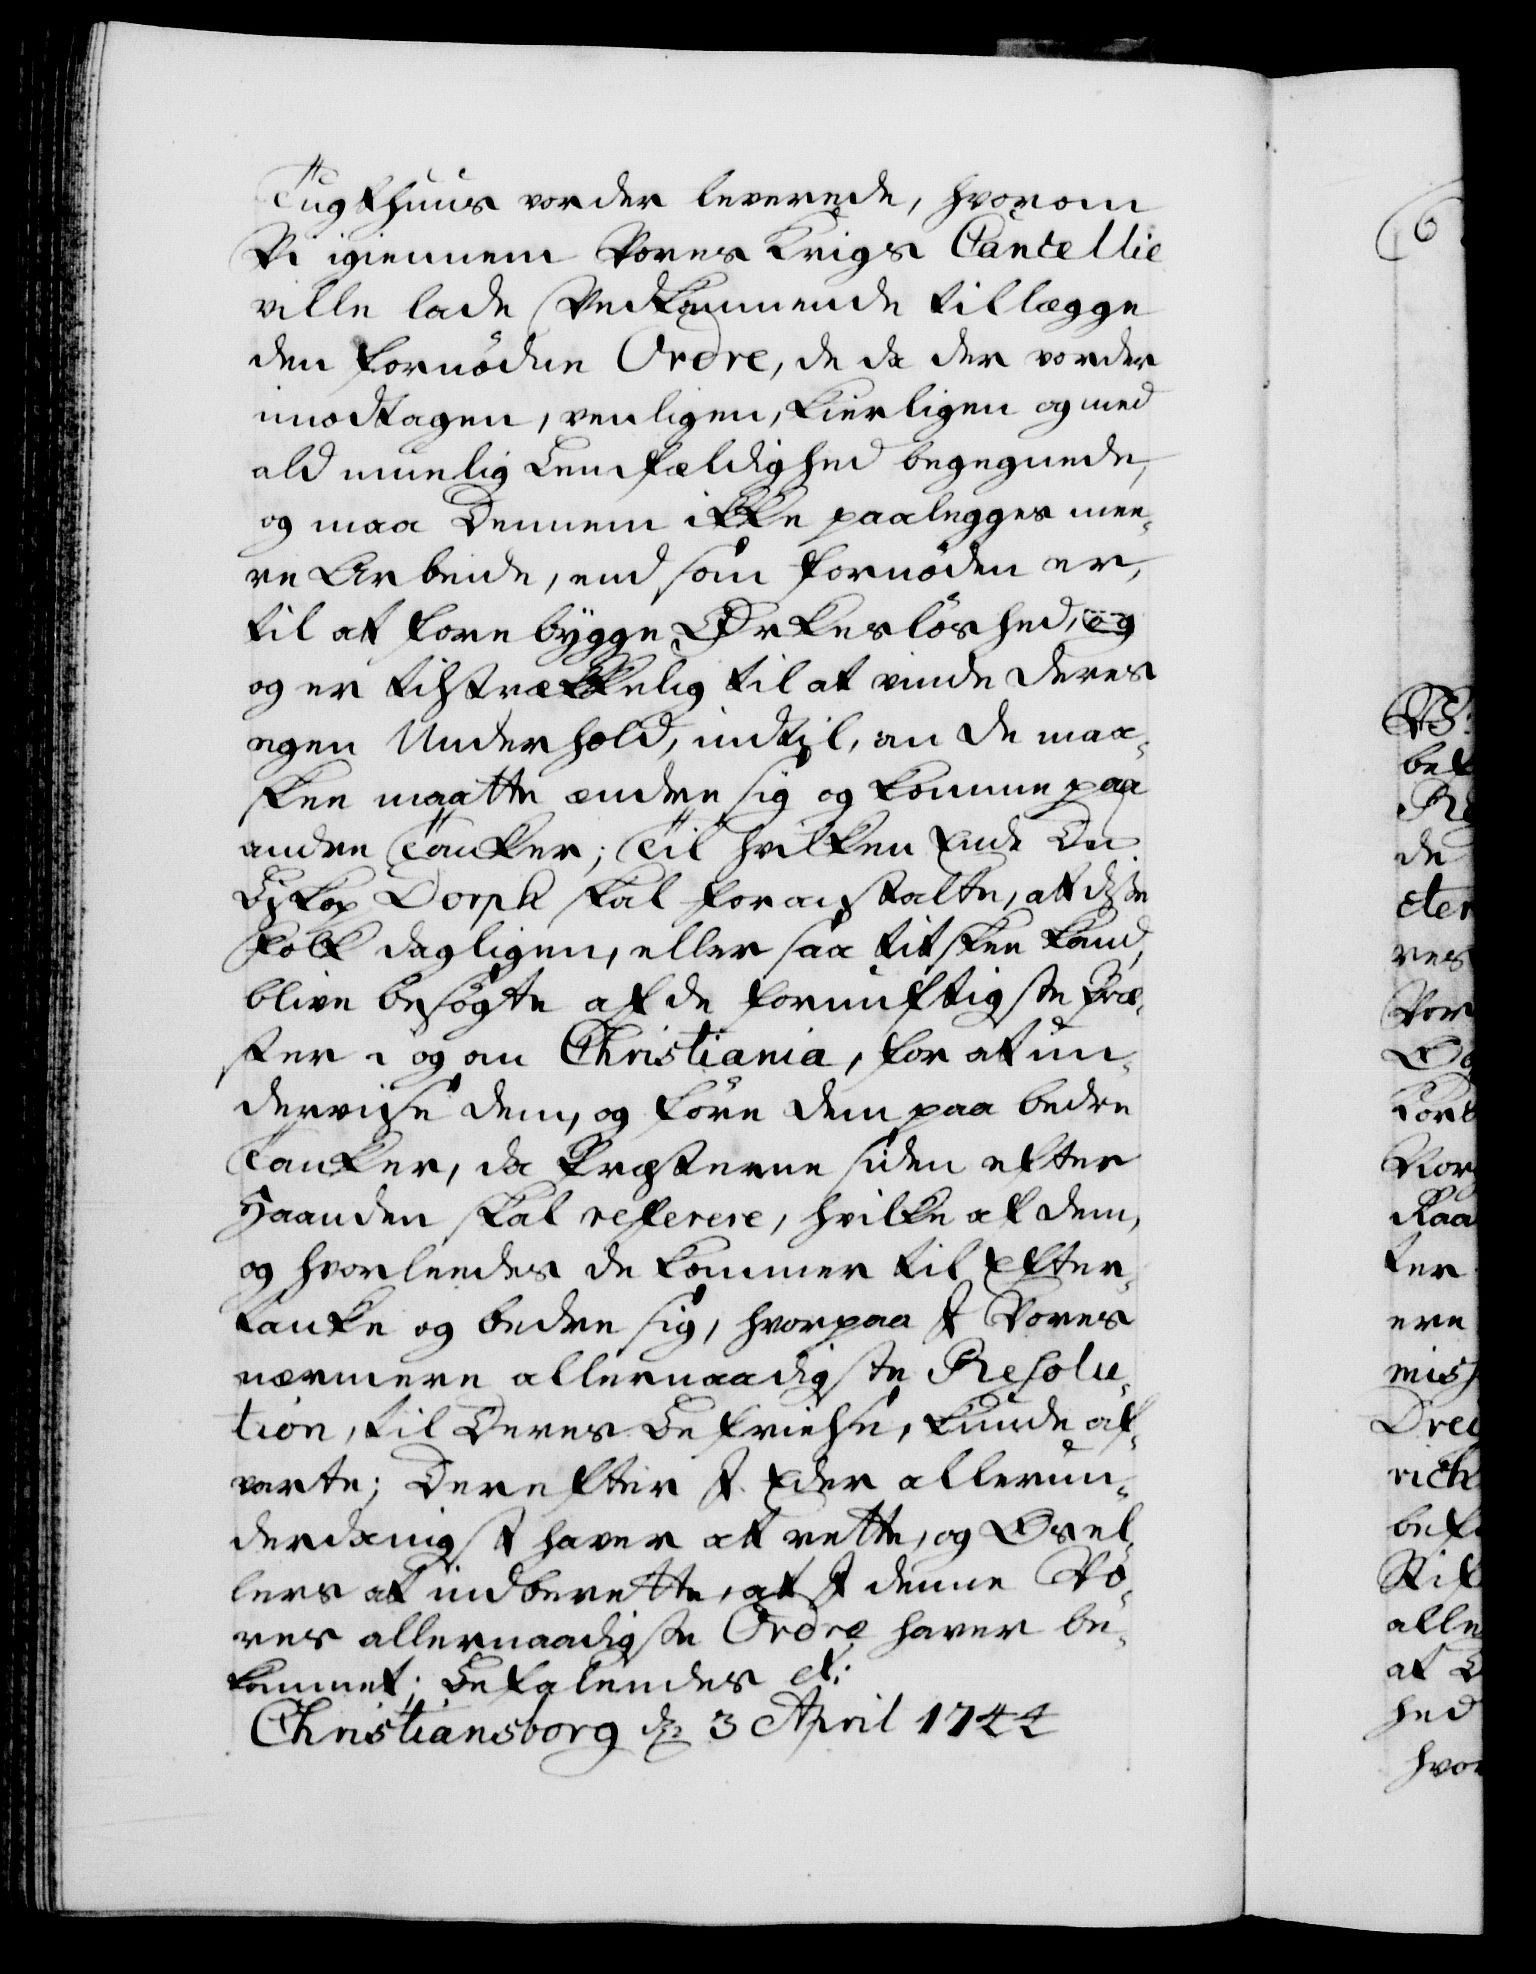 Tugthuus vorder leverede, hvorom
Vi igiennem Vores Krigs Cancellie
ville lade Vedkommende tillægge
den fornödne Ordre, de da der vorder
imodtagen, venligen, kierligen og med
ald muelig Lemfældighed begegnede,
og maa Dennem ikke paalegges mee¬
re Arbeide, end som fornöden er,
til at forebÿgge Ørkeslöshed, og
og er tilstrækkelig til at vinde deres
egen Underhold, indtil, om de maa¬
skee maatte ændre sig og komme paa
andre Tanker; Til hvilken Ende Du
Biskop Dorph skal foranstalte, at disse
Folk dagligen, eller saa tit skee kand,
blive besögte af de fornuftigste Præ¬
ster i og om Christiania, for at un¬
dervise dem, og före dem paa bedre
Tanker, da Præsterne siden efter
Haanden skal referere, hvilke af dem,
og hvorleedes de kommer til Efter¬
tanke og bedre sig, hvorpaa I Vores
nærmere allernaadigste Resolu¬
tion, til Deres Befrielse, kunde af¬
varte; Derefter I Eder allerun¬
derdanigst haver at rette, og Osel¬
lers at indberette, at I denne Vo¬
res allernaadigste Ordre haver be¬
kommet; Befalendes et:
Christiansborg d: 3 April 1744